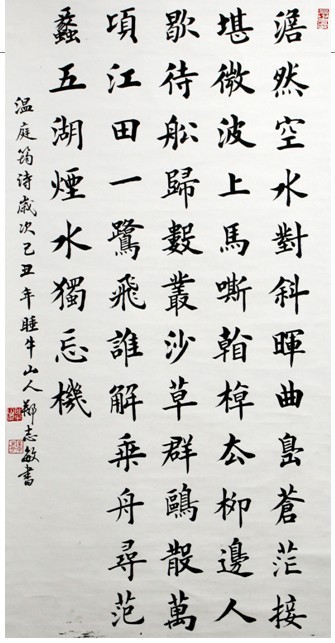 澹然空水對斜暉曲島蒼茫接
堪微波上馬嘶看棹去柳邊人
歇待船歸數叢沙草群鷗散萬
頃江田一鷺飛誰解乘舟尋范
蠡五湖煙水獨忘機
温庭筠詩歲次己丑年睡牛山人鄭志敏書